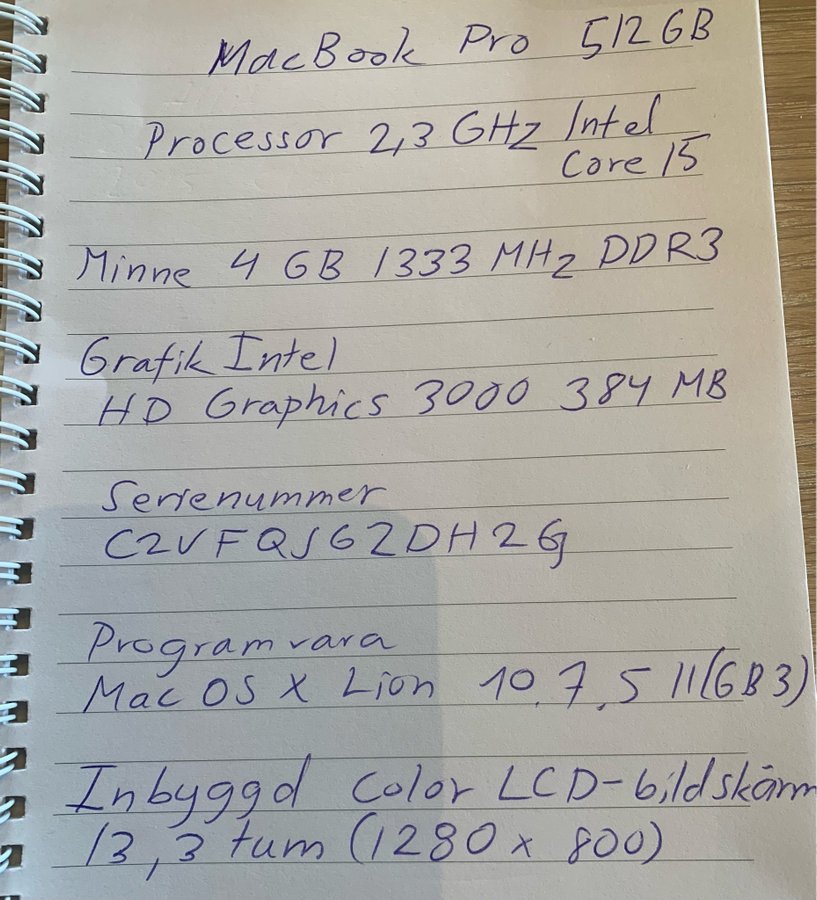 MacBook Pro 512GB
Processor 2,3 GHz Intel
Core I5
Minne 4 GB 1333 MHz DDR3
Grafik Intel
HD Graphics 3000 384 MB
Serienummer
C2VFQJGZDH2G
Programvara
Mac OS X Lion 10.7.5 11(GB3)
Inbyggd Color LCD-bildskärm
13,3 tum (1280 x 800)